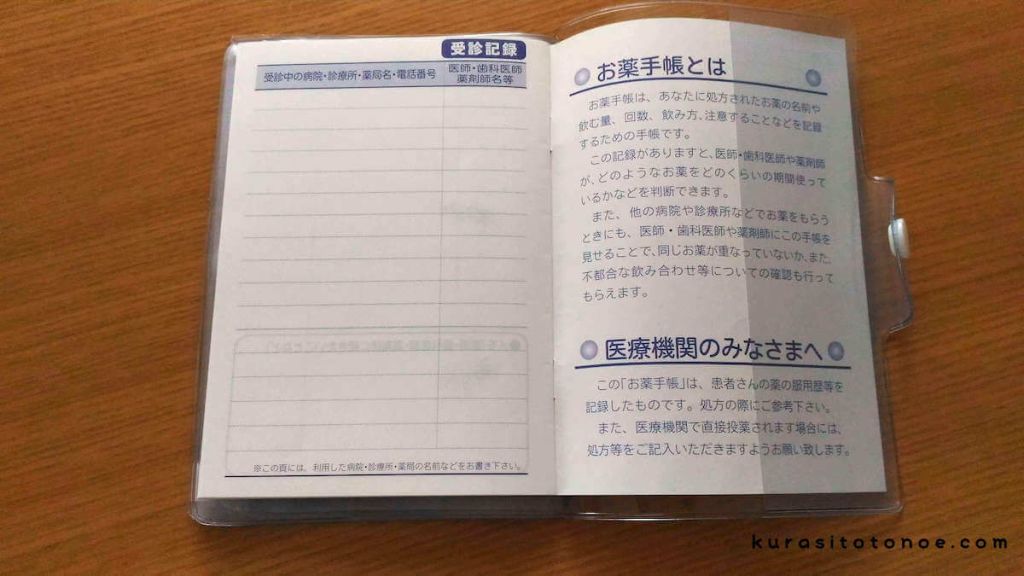 受診記録
受診中の病院・診療所・薬局名・電話番号
医師・歯科医師
薬剤師名等
※この頁には、利用した病院・診療所・薬局の名前などをお書き下さい。
お薬手帳とは
お薬手帳は、あなたに処方されたお薬の名前や
飲む量、回数、飲み方、注意することなどを記録
するための手帳です。
この記録がありますと、医師・歯科医師や薬剤師
が、どのようなお薬をどのくらいの期間使って
いるかなどを判断できます。
また、他の病院や診療所などでお薬をもらう
ときにも、医師・歯科医師や薬剤師にこの手帳を
見せることで、同じお薬が重なっていないか、また、
不都合な飲み合わせ等についての確認も行って
もらえます。
医療機関のみなさまへ
この「お薬手帳」は、患者さんの薬の服用歴等を
記録したものです。処方の際にご参考下さい。
また、医療機関で直接投薬されます場合には、
処方等をご記入いただきますようお願い致します。
kurasitotonoe.com